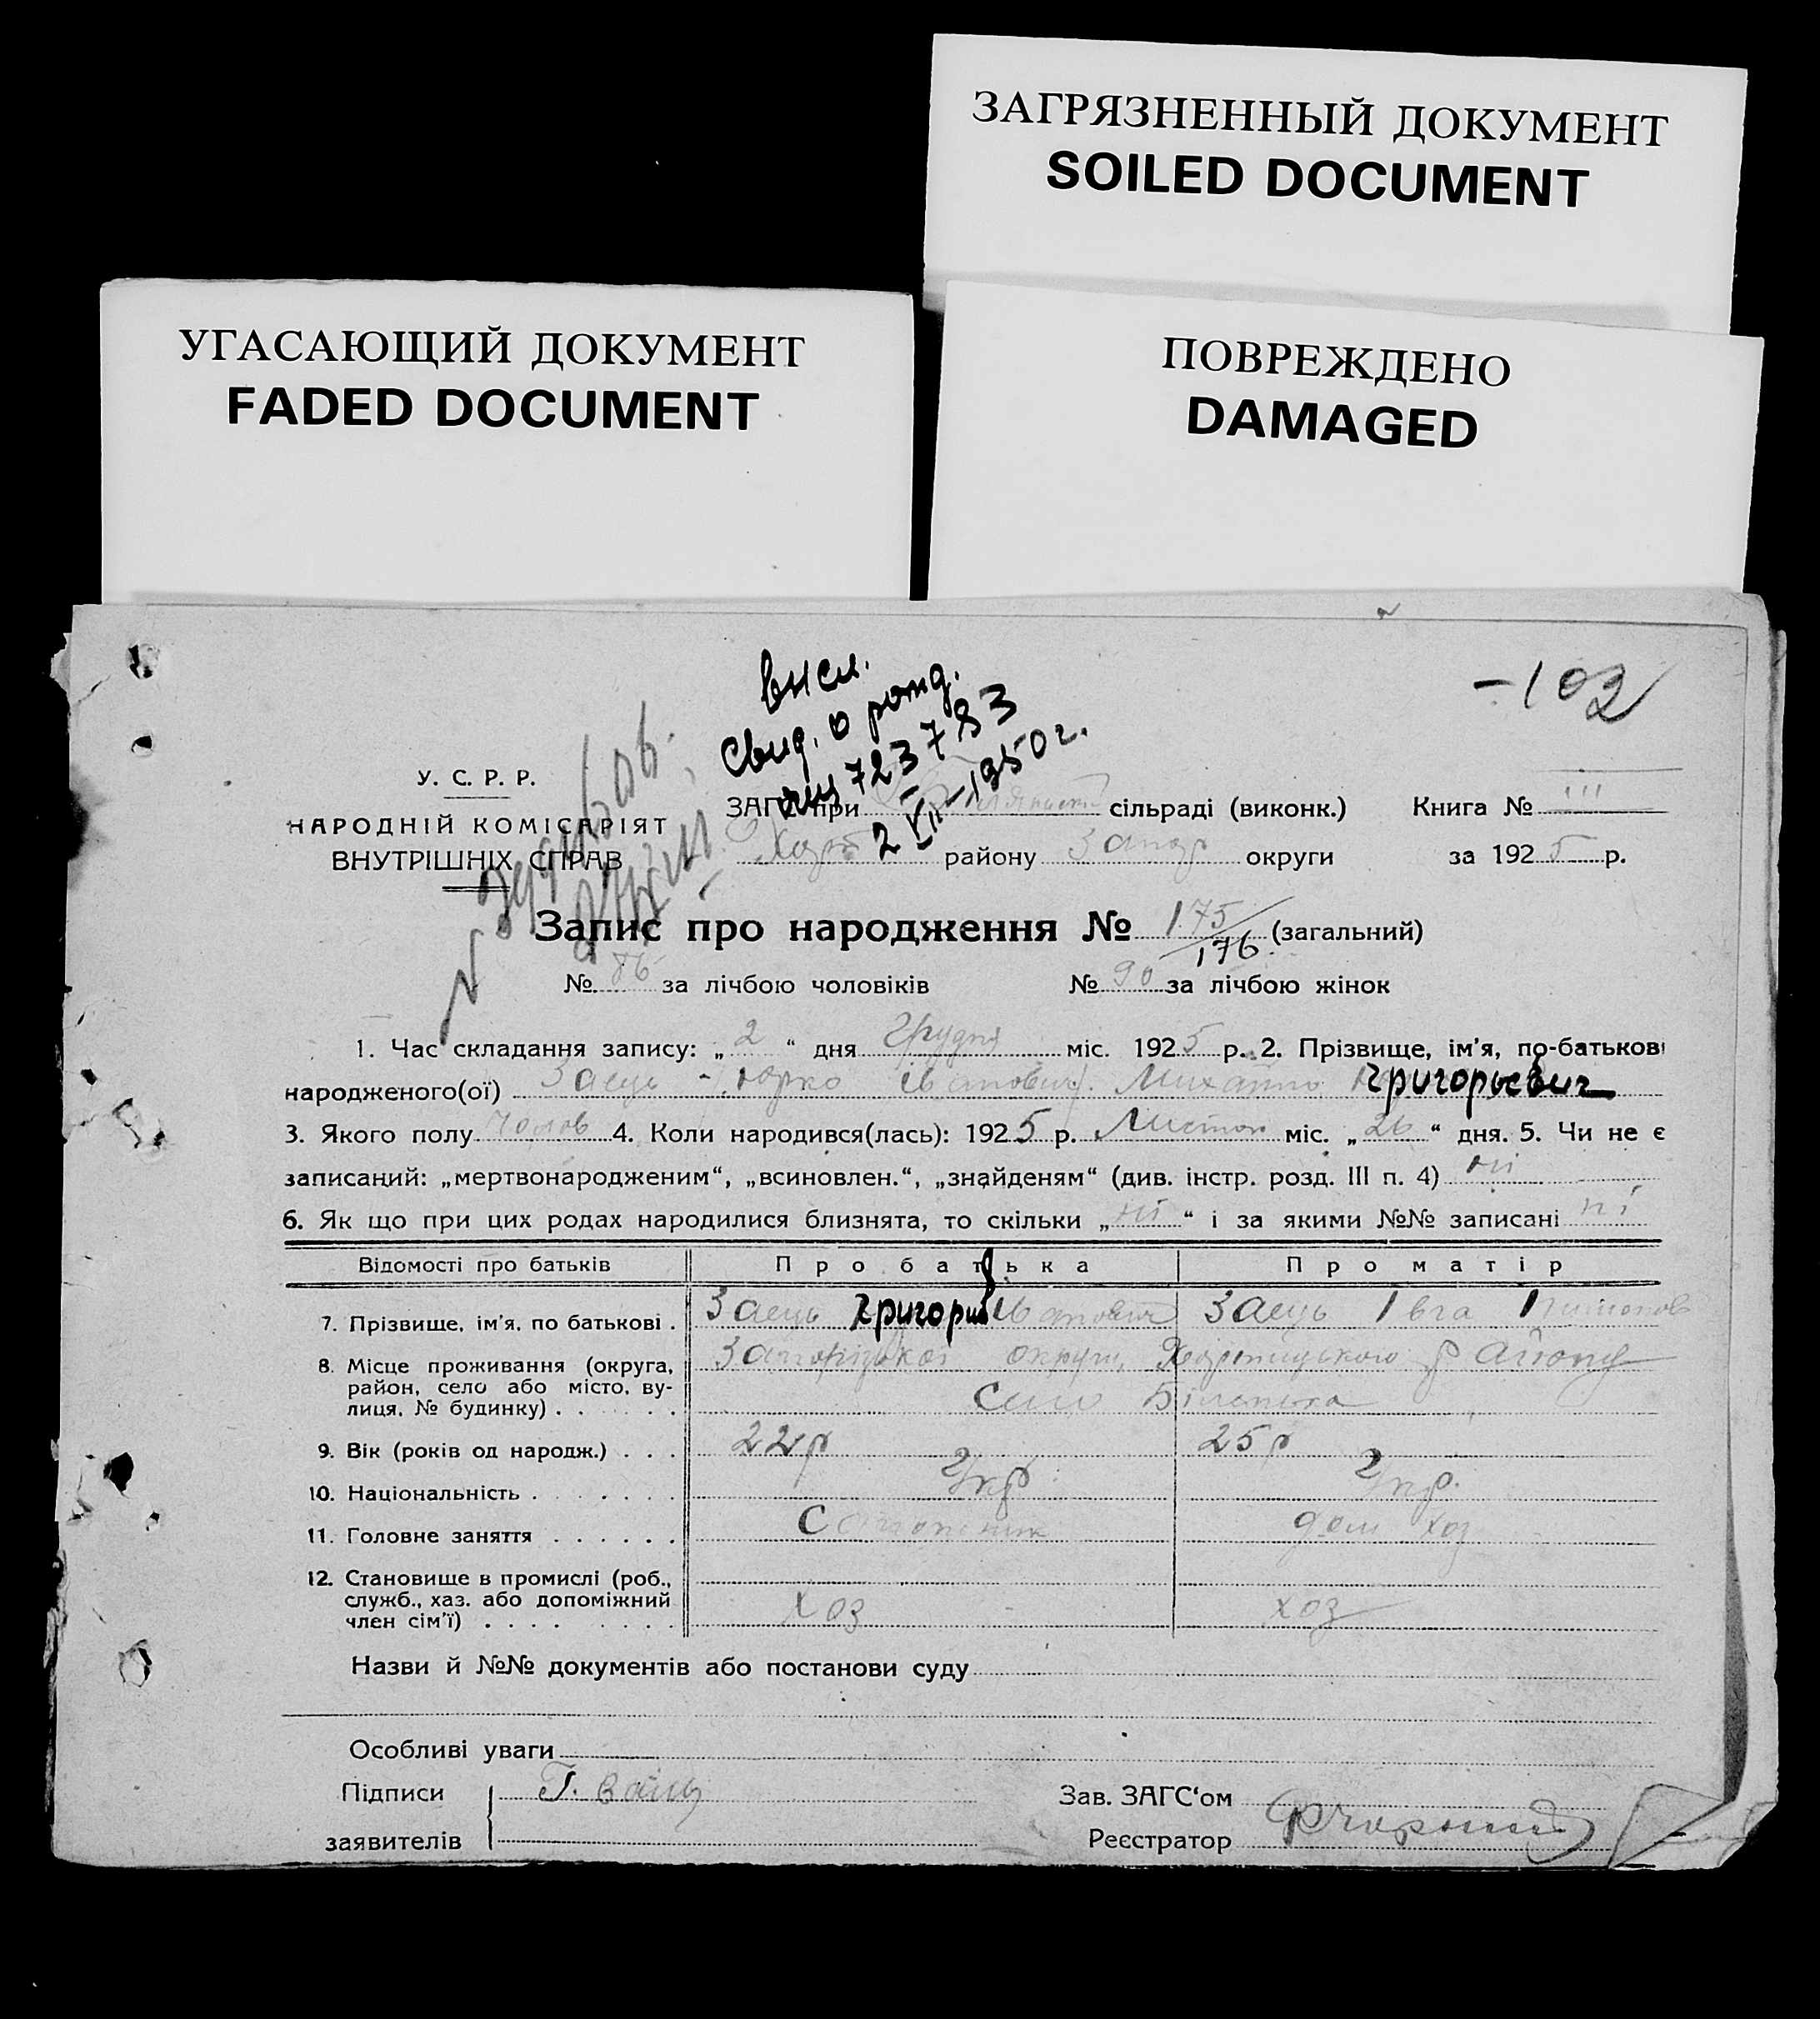 ЗАГРЯЗНЕННЫЙ ДОКУМЕНТ
SOILED DOCUMENT
УГАСАЮЩИЙ ДОКУМЕНТ
FADED DOCUMENT
ПОВРЕЖДЕНО
DAMAGED
-102
свид. о рожд.
723783
2 VII-1950 г.
У. С. Р. Р.
НАРОДНІЙ КОМІСАРІЯТ
ВНУТРІШНІХ СПРАВ
ЗАГС при сільраді (виконк.) Книга № III
Хорт району Запор округи за 1925 р.
Запис про народження № 175/176 (загальний)
№ 86 за лічбою чоловіків № 90 за лічбою жінок
1. Час складання запису: „2“ дня Грудня міс. 1925 р. 2. Прізвище, ім’я, по-батькові
народженого(ої) Заець Юрко Іванович Михайло Григорьевич
3. Якого полу Чолов 4. Коли народився(лась): 1925 р. Листоп міс. „26“ дня. 5. Чи не є
записаний: „мертвонародженим“, „всиновлен.“, „знайденям“ (див. інстр. розд. III п. 4) ні
6. Як що при цих родах народилися близнята, то скільки „ні“ і за якими №№ записані ні
Відомості про батьків Про батька Про матір
7. Прізвище, ім’я, по батькові . Заець Григорий Іванович Заець Івга
8. Місце проживання (округа, Запорізької округи, Хортицького району
район, село або місто, ву-
лиця, № будинку) . . . . . село Біленька
9. Вік (років од народж.) . . . 22 р 25 р
10. Національність . . . . . . . Укр Укр.
11. Головне заняття . . . . . . дом хоз
12. Становище в промислі (роб.,
служб., хаз. або допоміжний
член сім’ї) . . . . . . . . хоз хоз
Назви й №№ документів або постанови суду
Особливі уваги
Підписи
заявителів
Зав. ЗАГС‘ом
Реєстратор